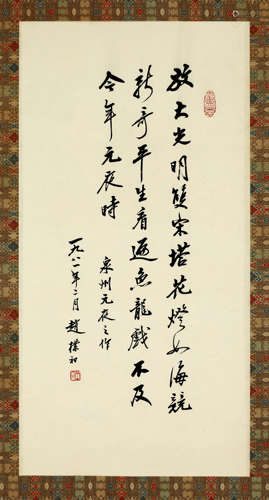 放大光明雙宋塔花燈如海競
新奇平生看遍魚龍戲不及
今年元夜時
泉州元夜之作
一九八一年二月趙樸初